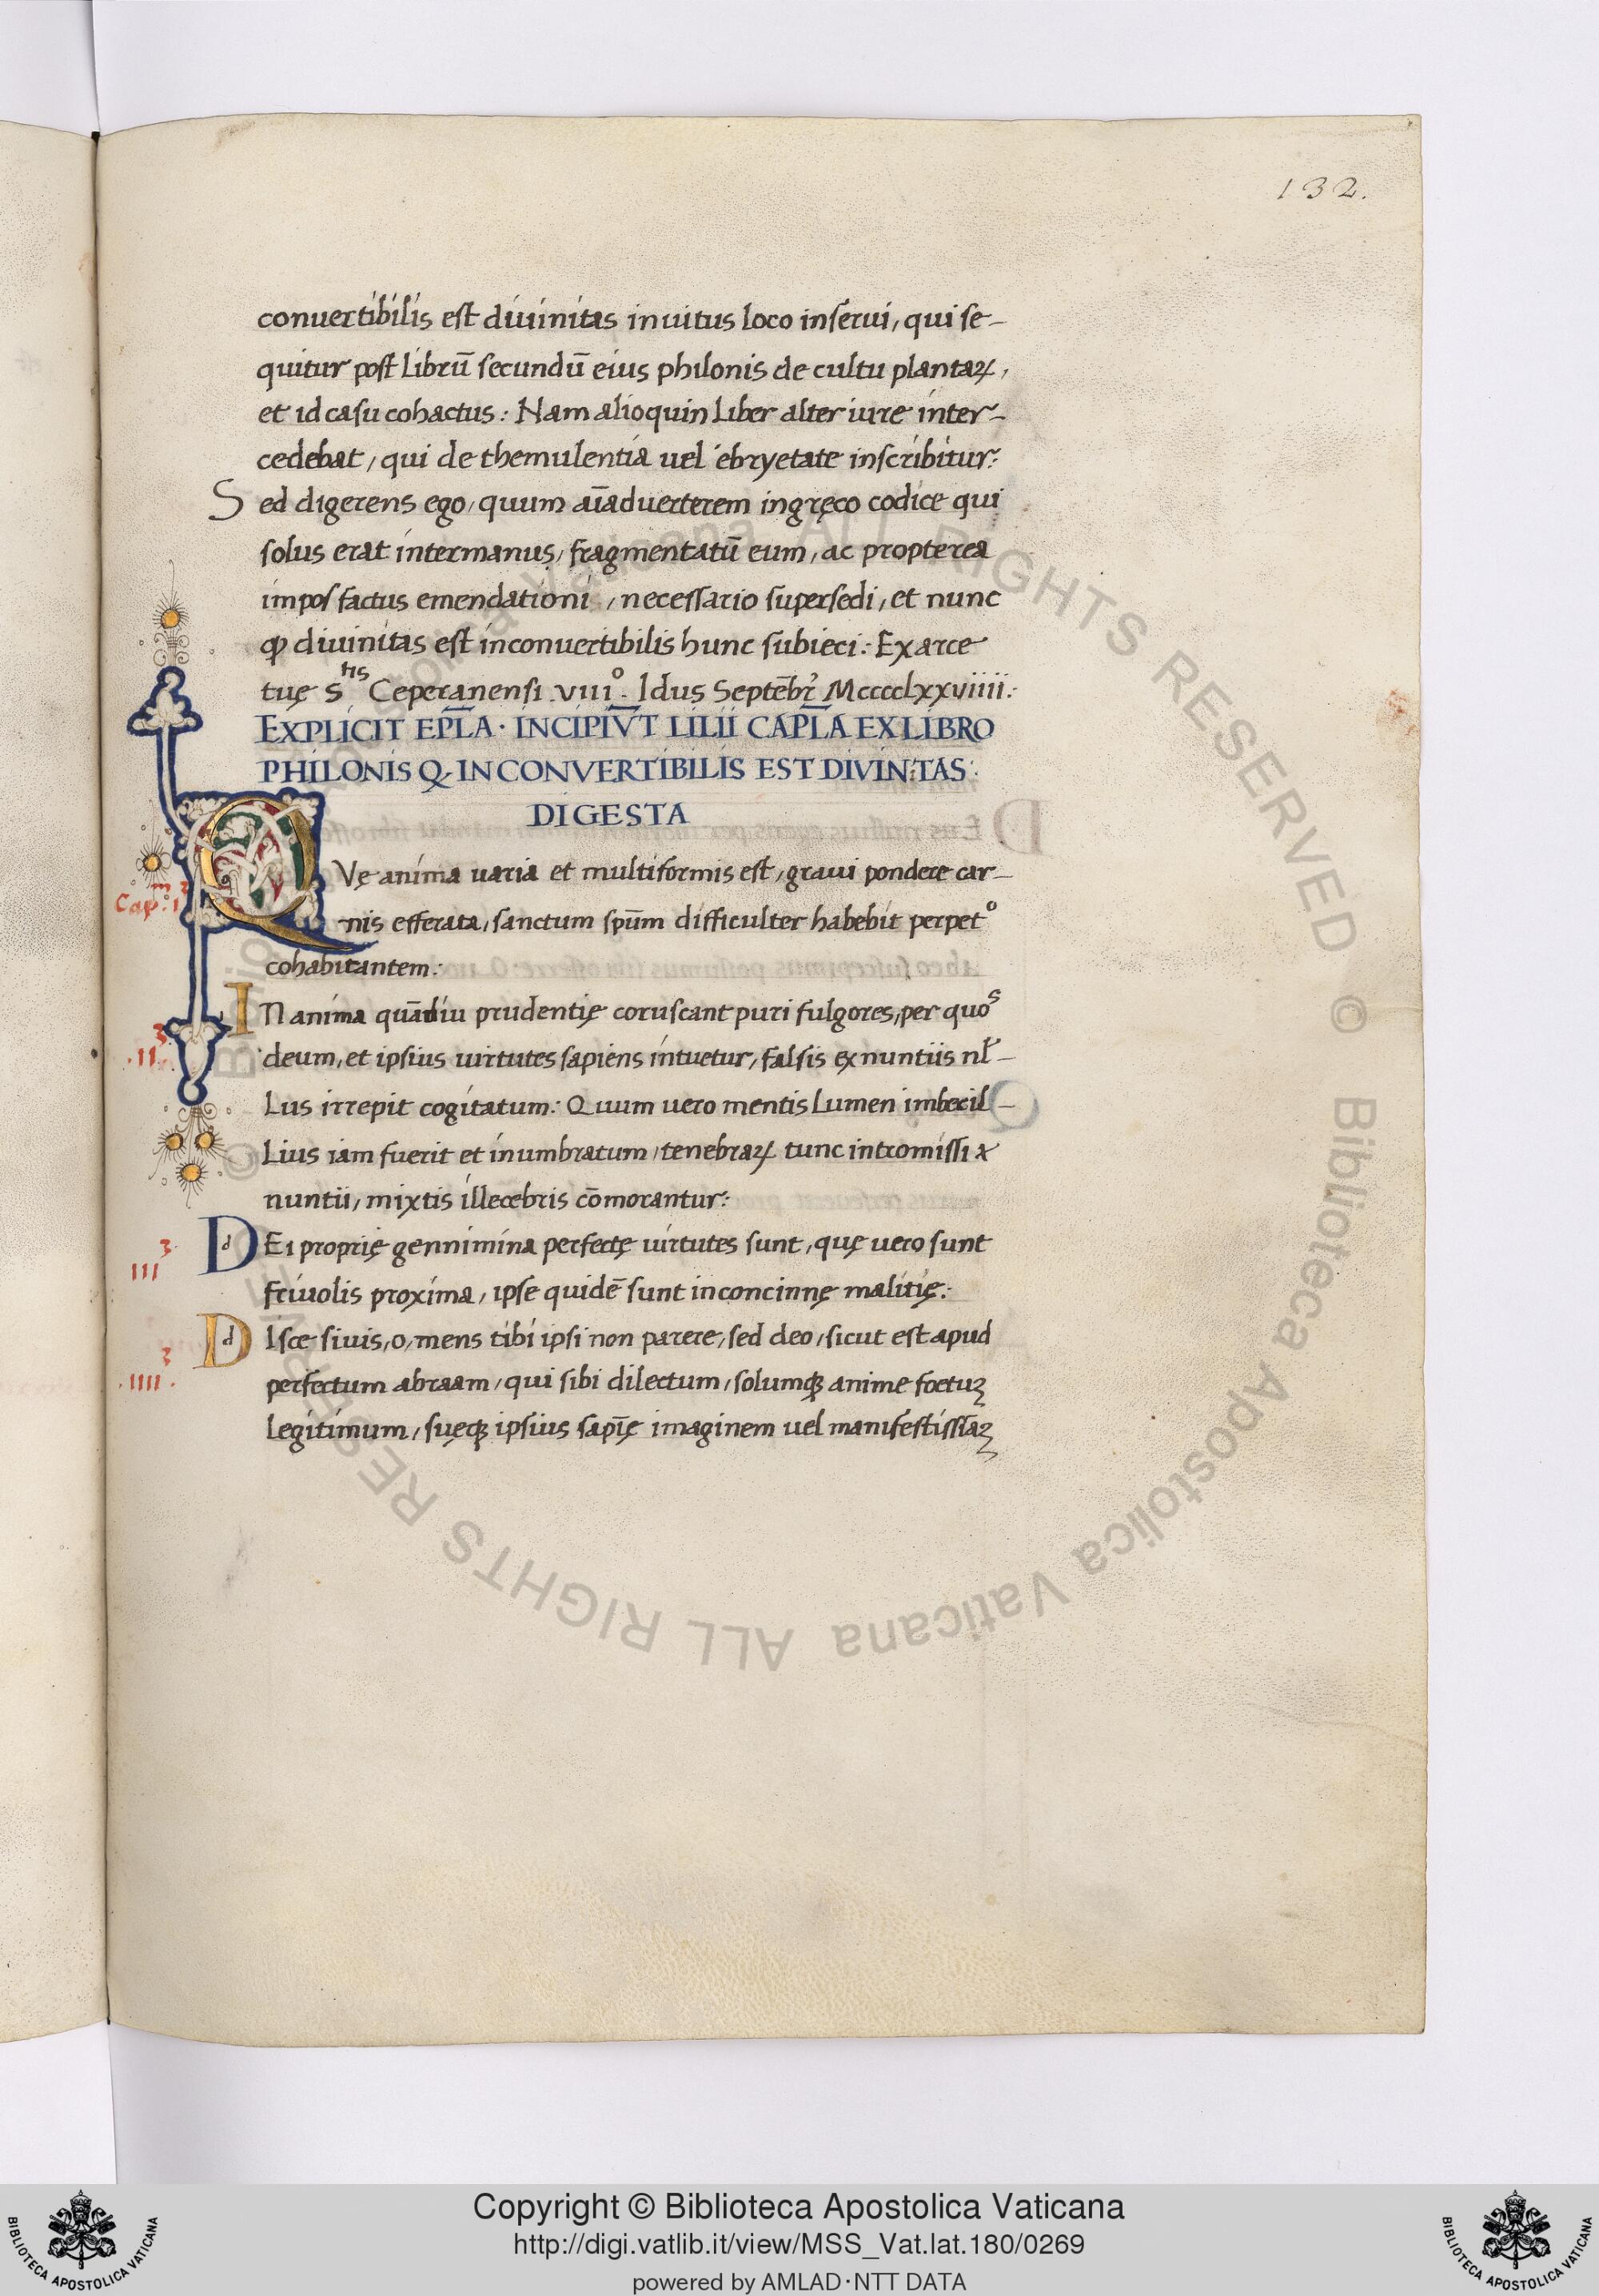 132.
conuertibilis est diuinitas inuitus loco inserui, qui se-
quitur post librū secundū eius philonis de cultu plantaꝝ,
et id casu cohactus: Nam alioquin liber alter iure inter-
cedebat, qui de themulentia uel ebryetate inscribitur:
Sed digerens ego, quum aīaduerterem in gręco codice qui
solus erat inter manus, fragmentatū eum, ac propterea
impos factus emendationi, necessario supersedi, et nunc
ꝙ diuinitas est inconuertibilis hunc subieci: Ex arce
tuę Sᵗⁱˢ Ceperanensi. VIIIº. Idus Septēbr̄ MccccLxxviiii:
EXPLICIT EPL̄A · INCIPIV̄T LILII CAPL̄A EX LIBRO
PHILONIS Q INCONVERTIBILIS EST DIVINITAS:
DIGESTA
Cap.m 3
.I
QVę anima uaria et multiformis est, graui pondere car-
nis efferata, sanctum spūm difficulter habebit perpetº
cohabitantem:
3
.II.
IN anima quādiu prudentię coruscant puri fulgores, per quos
deum, et ipsius uirtutes sapiens intuetur, falsis ex nuntiis nl̄-
lus irrepit cogitatum: Quum uero mentis lumen imbecil-
lius iam fuerit et inumbratum, tenebraꝝ tunc intromissi
nuntii, mixtis illecebris cōmorantur:
3
III
DEi proprię gennimina perfectę uirtutes sunt, quę uero sunt
friuolis proxima, ipse quidē sunt inconcinnę malitię:
3
.IIII.
DIsce si uis, o, mens tibi ipsi non parere, sed deo, sicut est apud
perfectum abraam, qui sibi dilectum, solumqꝫ anime foetuꝫ
legitimum, suęqꝫ ipsius sapīę imaginem uel manifestissīaꝫ
© Biblioteca Apostolica Vaticana ALL RIGHTS RESERVED © Biblioteca Apostolica Vaticana ALL RIGHTS RESERVED
Copyright © Biblioteca Apostolica Vaticana
http://digi.vatlib.it/view/MSS_Vat.lat.180/0269
powered by AMLAD·NTT DATA
BIBLIOTECA APOSTOLICA VATICANA
BIBLIOTECA APOSTOLICA VATICANA